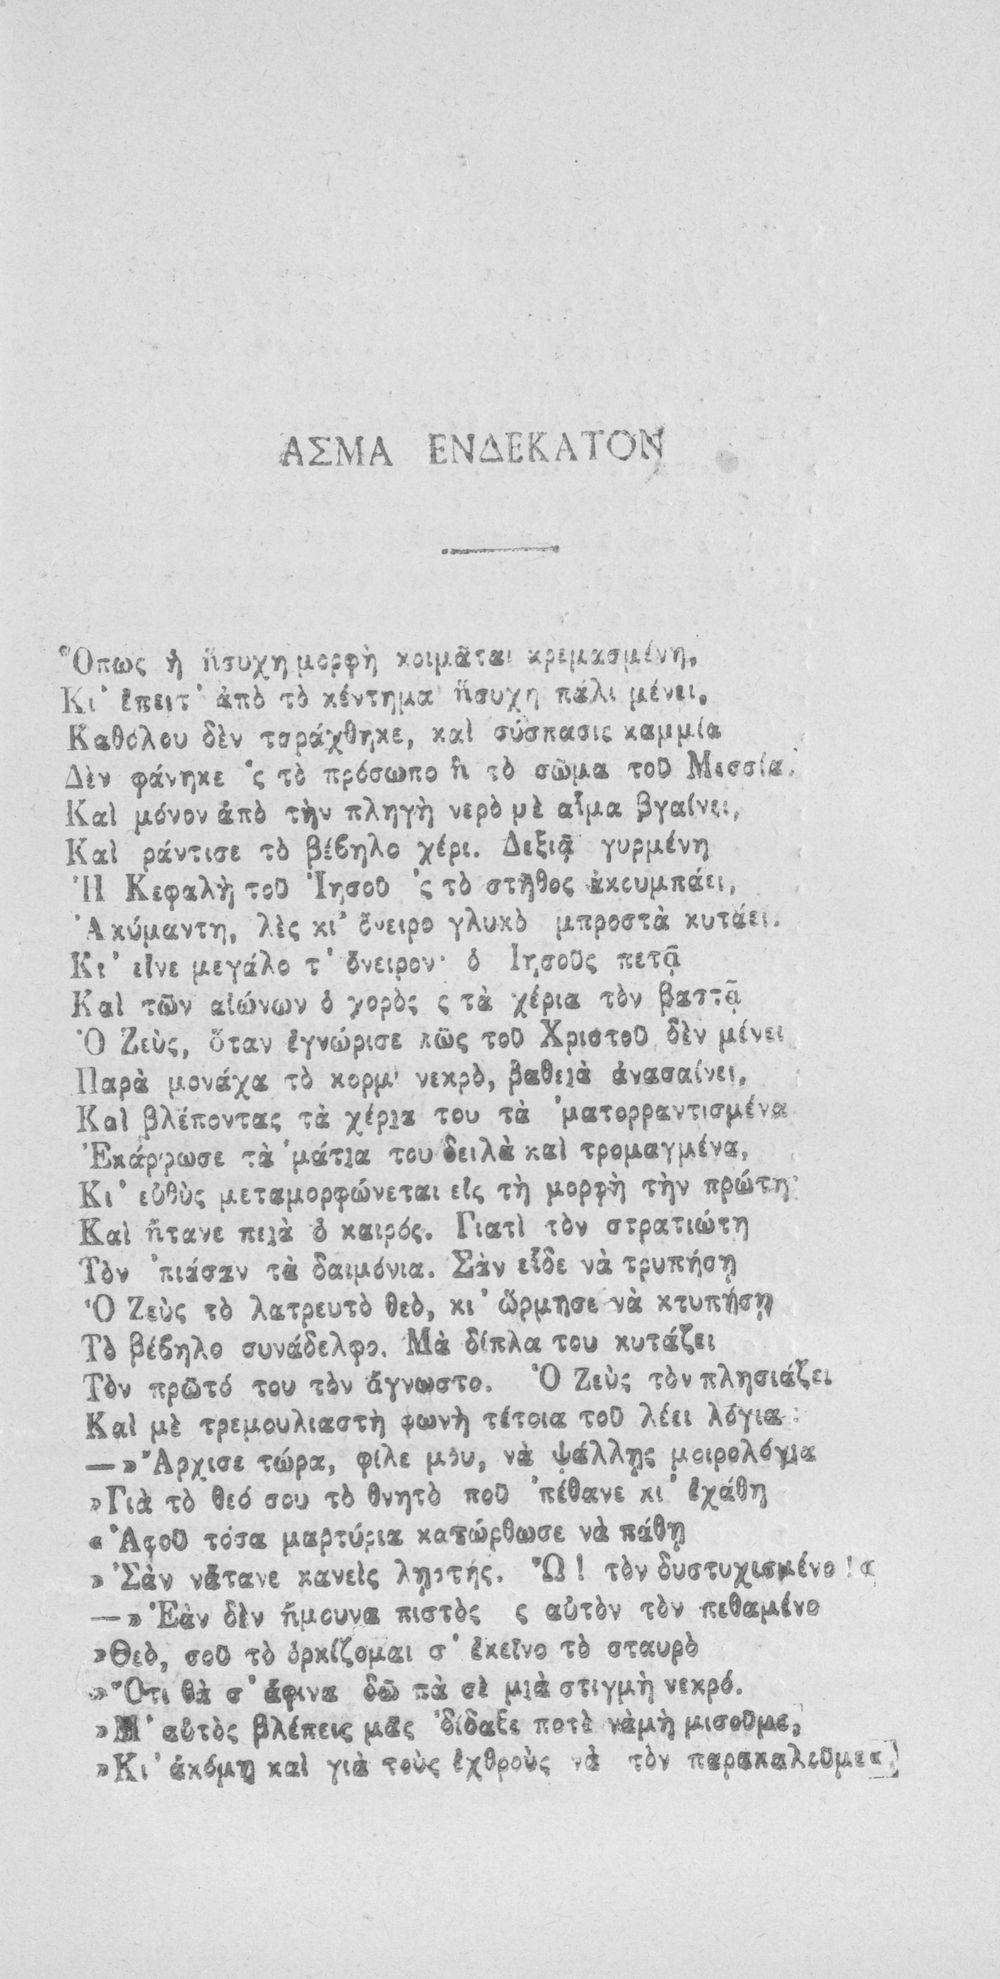 ΑΣΜΑ ΕΝΔΕΚΑΤΟΝ
Ὅπως ἡ ἥσυχη μορφὴ κοιμᾶται κρεμασμένη,
Κι' ἔπειτ' ἀπὸ τὸ κέντημα ἥσυχη πάλι μένει,
Καθόλου δὲν ταράχθηκε, καὶ σύσπασις καμμία
Δὲν φάνηκε 'ς τὸ πρόσωπο ἢ τὸ σῶμα τοῦ Μεσσία.
Καὶ μόνον ἀπὸ τὴν πληγὴ νερὸ μὲ αἷμα βγαίνει,
Καὶ ράντισε τὸ βέβηλο χέρι. Δεξιᾷ γυρμένη
Ἡ Κεφαλὴ τοῦ Ἰησοῦ 'ς τὸ στῆθος ἀκουμπάει,
Ἀκύμαντη, λὲς κι' ὄνειρο γλυκὸ μπροστὰ κυτάει.
Κι' εἶνε μεγάλο τ' ὄνειρον· ὁ Ἰησοῦς πετᾷ
Καὶ τῶν αἰώνων ὁ χορὸς ς τὰ χέρια τὸν βαστᾷ
Ὁ Ζεὺς, ὅταν ἐγνώρισε πῶς τοῦ Χριστοῦ δὲν μένει
Παρὰ μονάχα τὸ κορμὶ νεκρὸ, βαθειὰ ἀνασαίνει,
Καὶ βλέποντας τὰ χέρια του τὰ 'ματορραντισμένα
Ἐκάρφωσε τὰ 'μάτια του δειλὰ καὶ τρομαγμένα,
Κι' εὐθὺς μεταμορφώνεται εἰς τὴ μορφὴ τὴν πρώτη
Καὶ ἤτανε πειὰ ὁ καιρός. Γιατὶ τὸν στρατιώτη
Τὸν 'πιάσαν τὰ δαιμόνια. Σὰν εἶδε νὰ τρυπήσῃ
Ὁ Ζεὺς τὸ λατρευτὸ θεὸ, κι' ὥρμησε νὰ κτυπήσῃ
Τὸ βέβηλο συνάδελφο. Μὰ δίπλα του κυτάζει
Τὸν πρῶτό του τὸν ἄγνωστο. Ὁ Ζεὺς τὸν πλησιάζει
Καὶ μὲ τρεμουλιαστὴ φωνὴ τέτοια τοῦ λέει λόγια:
—»Ἄρχισε τώρα, φίλε μου, νὰ ψάλλῃς μοιρολόγια
»Γιὰ τὸ θεό σου τὸ θνητὸ ποῦ 'πέθανε κι' ἐχάθη
«Ἀφοῦ τόσα μαρτύρια κατώρθωσε νὰ πάθῃ
»Σὰν νἄτανε κανεὶς λῃστής. Ὤ! τὸν δυστυχισμένο!«
—»Ἐὰν δὲν ἤμουνα πιστὸς ς αὐτὸν τὸν πεθαμένο
»Θεὸ, σοῦ τὸ ὁρκίζομαι σ' ἐκεῖνο τὸ σταυρὸ
»Ὅτι θὰ σ' ἄφινα δῶ πὰ σὲ μιὰ στιγμὴ νεκρό.
»Μ' αὐτὸς βλέπεις μᾶς 'δίδαξε ποτὲ νὰμὴ μισοῦμε,
»Κι' ἀκόμη καὶ γιὰ τοὺς ἐχθροὺς νὰ τὸν παρακαλεῦμε«